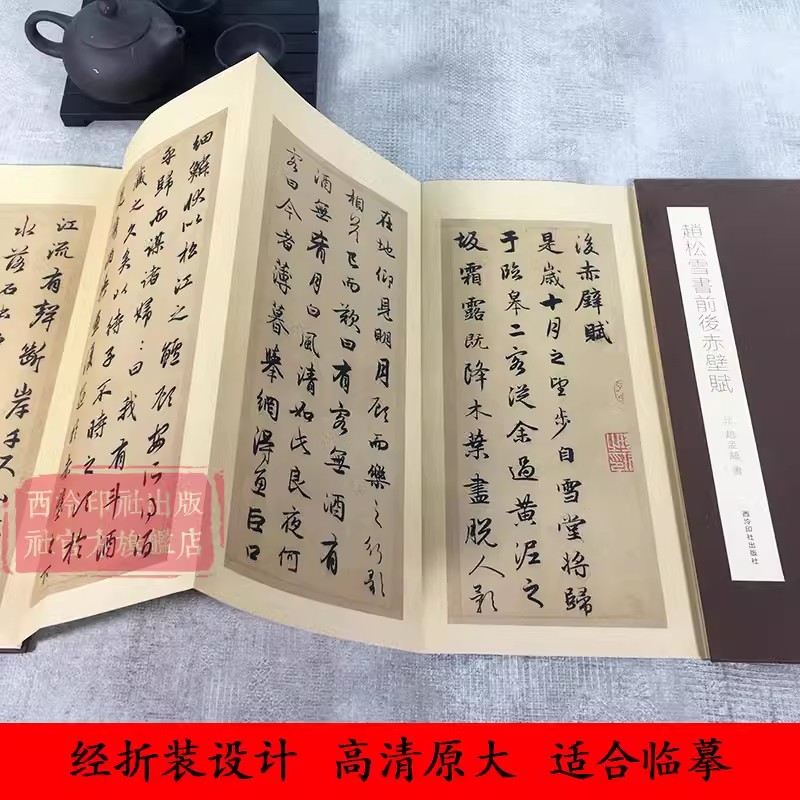 趙松雪書前後赤壁賦
元 趙孟頫 書
西泠印社出版社
後赤壁賦
是歲十月之望步自雪堂將歸
于臨皋二客從余過黄泥之
坂霜露既降木葉盡脱人影
在地仰見明月顧而樂之行歌
相答已而歎曰有客無酒有
酒無肴月白風清如此良夜何
客曰今者薄暮舉網得魚巨口
細鱗狀似松江之鱸顧安所得酒
乎歸而謀諸婦:曰我有斗酒
藏之久矣以待子不時之須於
是攜酒與魚復遊於赤壁之下
江流有聲斷岸千尺山
水落石出
西泠印社出版
社官方旗艦店
经折装设计 高清原大 适合临摹